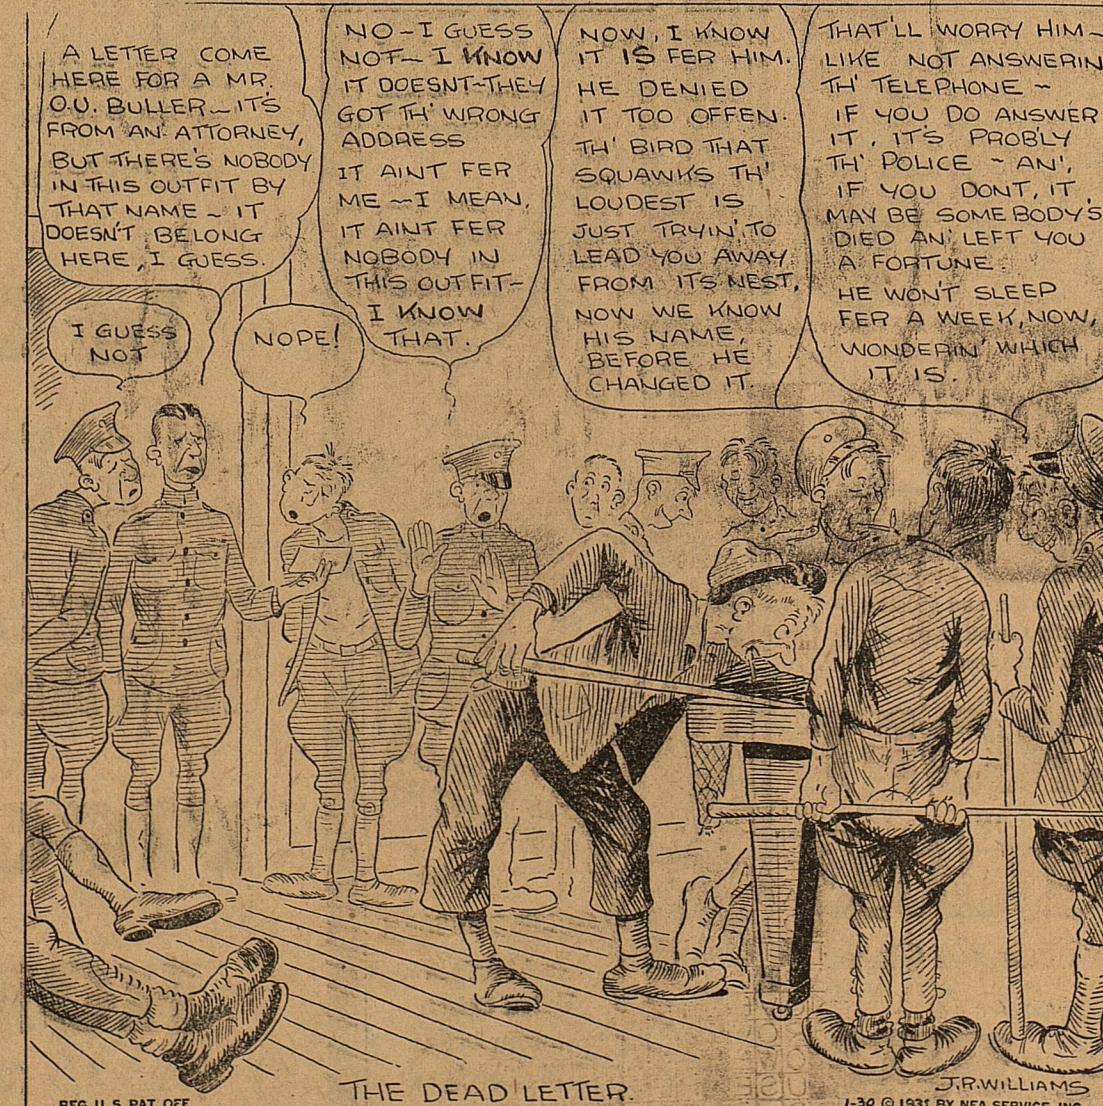 A LETTER COME
HERE FOR A MR.
O.U. BULLER — IT'S
FROM AN ATTORNEY,
BUT THERE'S NOBODY
IN THIS OUTFIT BY
THAT NAME — IT
DOESN'T BELONG
HERE, I GUESS.
I GUESS
NOT
NOPE!
NO — I GUESS
NOT — I KNOW
IT DOESNT — THEY
GOT TH' WRONG
ADDRESS
IT AINT FER
ME — I MEAN,
IT AINT FER
NOBODY IN
THIS OUTFIT —
I KNOW
THAT.
NOW, I KNOW
IT IS FER HIM.
HE DENIED
IT TOO OFFEN.
TH' BIRD THAT
SQUAWKS TH'
LOUDEST IS
JUST TRYIN' TO
LEAD YOU AWAY
FROM ITS NEST,
NOW WE KNOW
HIS NAME,
BEFORE HE
CHANGED IT.
THAT'LL WORRY HIM —
LIKE NOT ANSWERIN
TH' TELEPHONE —
IF YOU DO ANSWER
IT, IT'S PROB'LY
TH' POLICE — AN',
IF YOU DONT, IT
MAY BE SOMEBODY'S
DIED AN' LEFT YOU
A FORTUNE.
HE WON'T SLEEP
FER A WEEK, NOW,
WONDERIN' WHICH
IT IS.
THE DEAD LETTER.
J.R. WILLIAMS
REG. U. S. PAT. OFF.
1-30 © 1931 BY NEA SERVICE, INC.